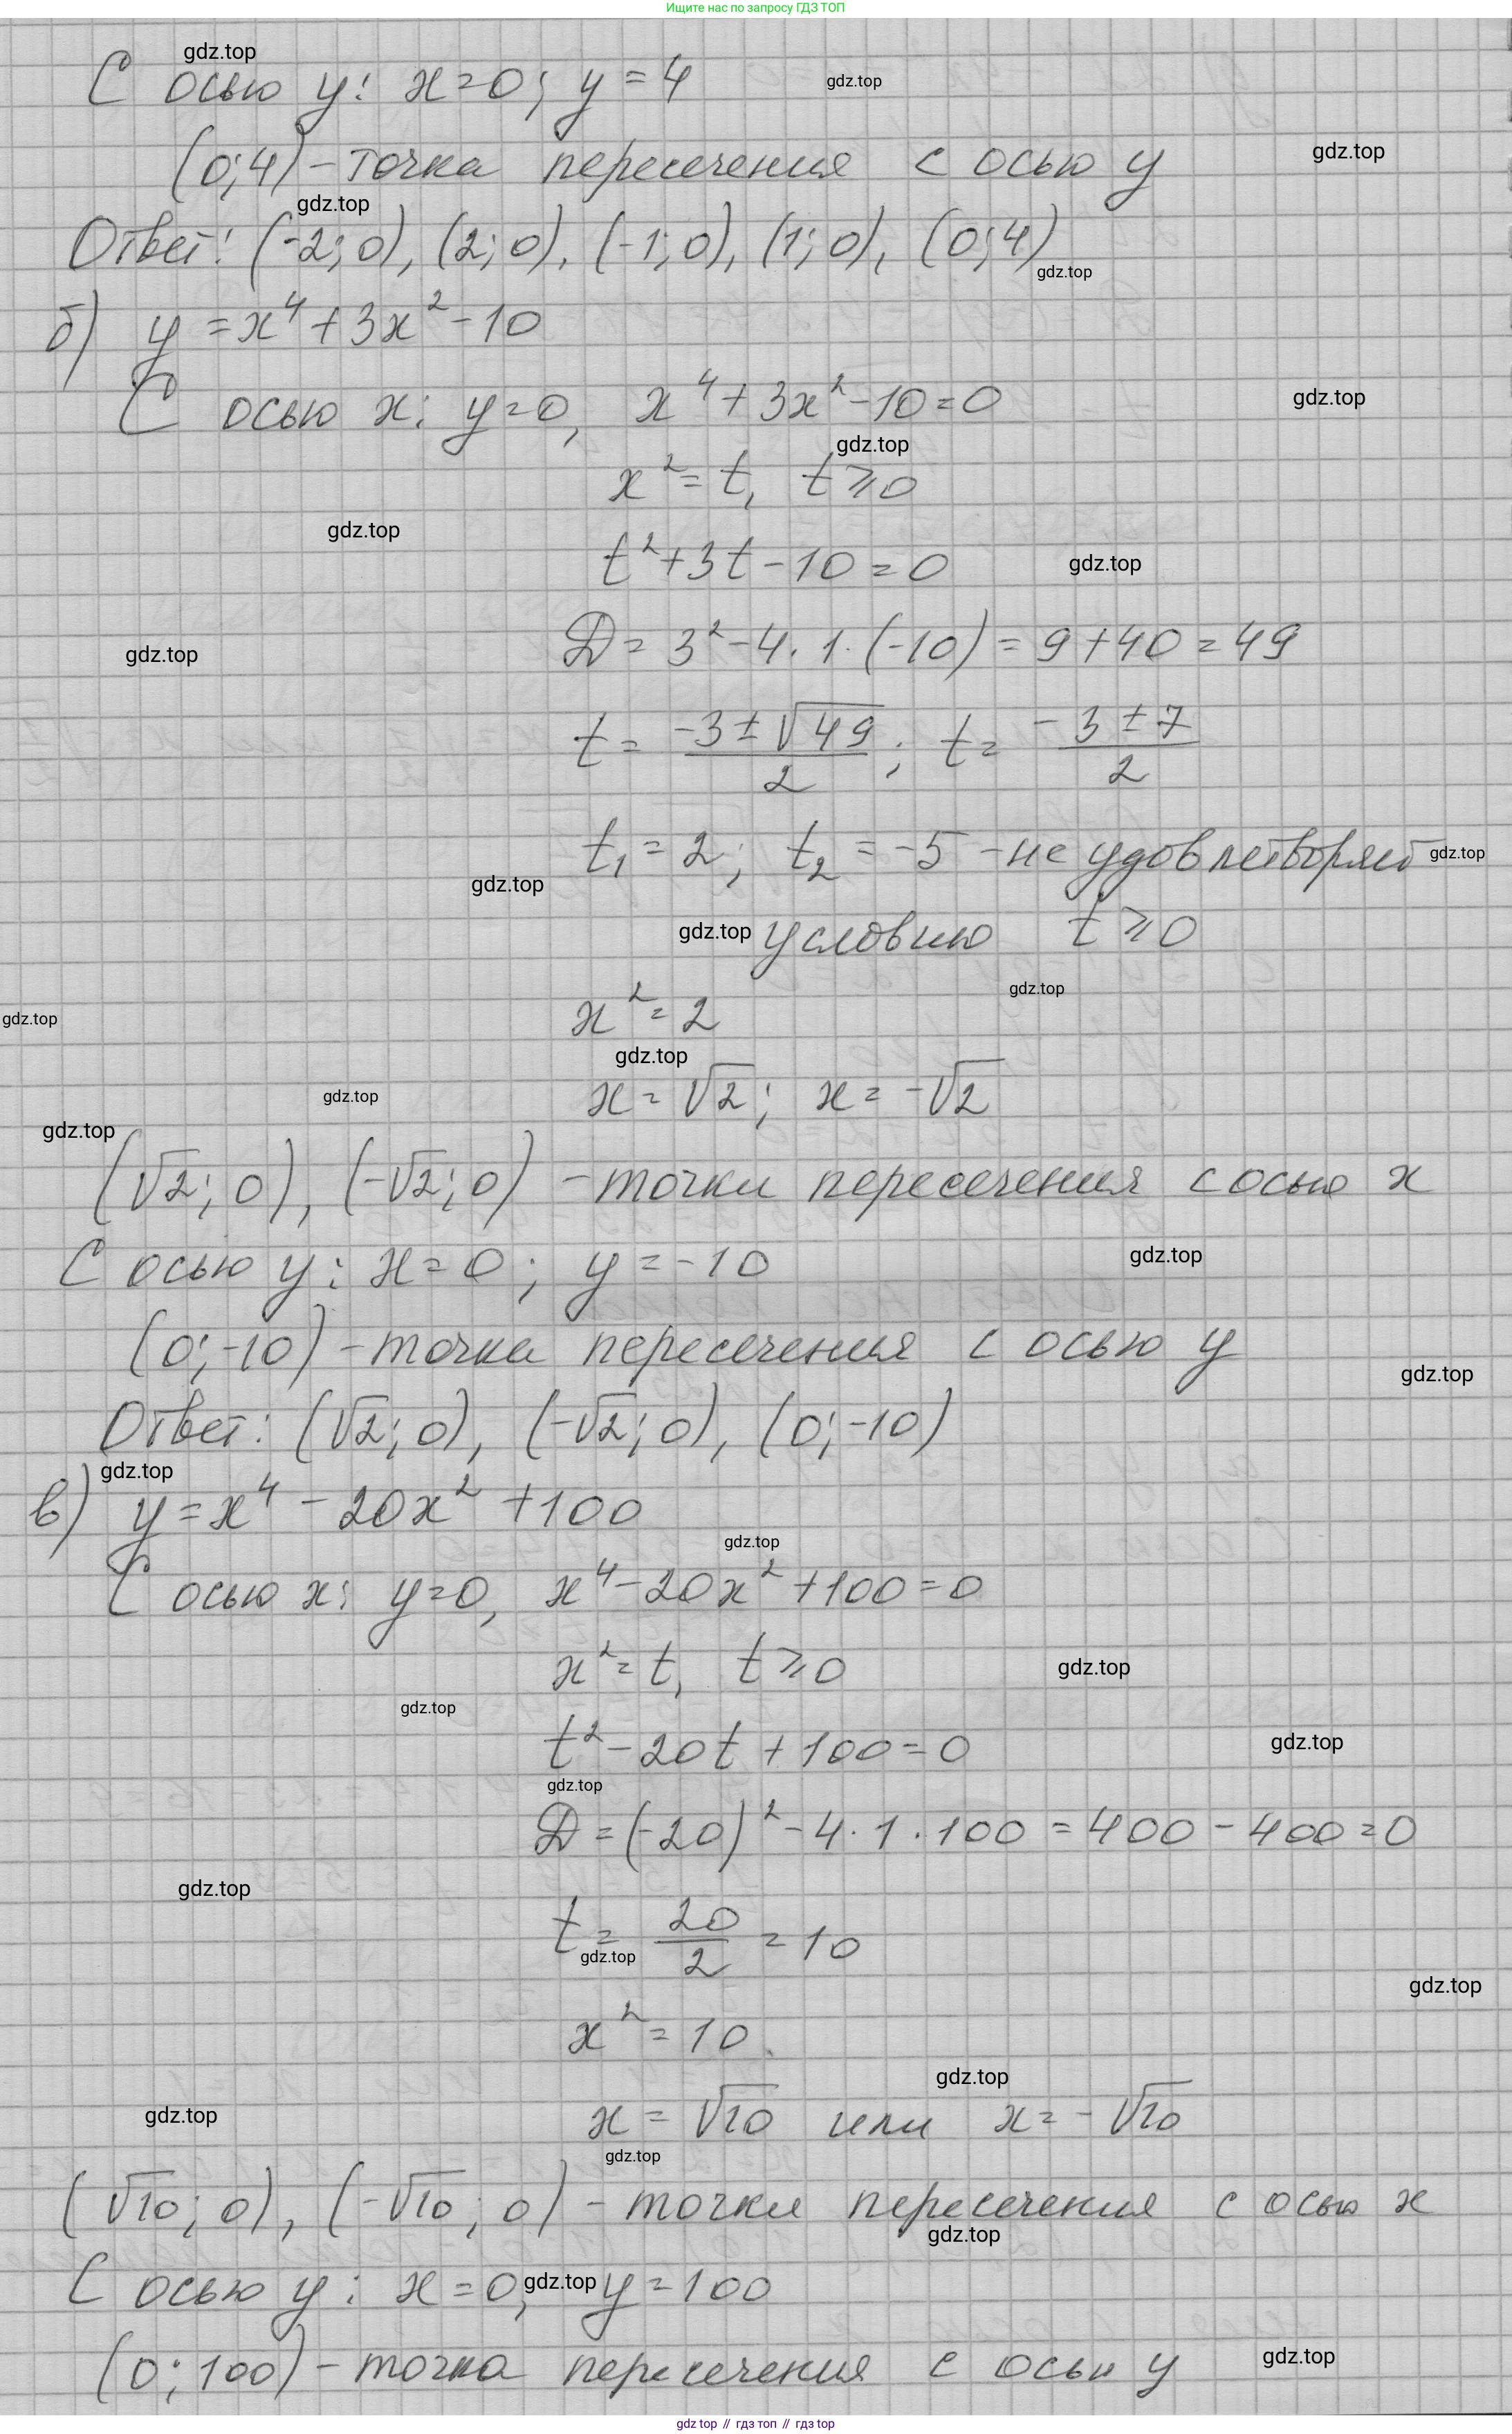 Ищите нас по запросу ГДЗ ТОП
gdz.top
С осью y: x=0; y=4
gdz.top
(0;4) - точка пересечения с осью y
gdz.top
gdz.top
Ответ: (-2; 0), (2; 0), (-1; 0), (1; 0), (0; 4)
gdz.top
б) y = x⁴ + 3x² - 10
С осью x: y=0, x⁴ + 3x² - 10 = 0
gdz.top
gdz.top
x² = t, t ⩾ 0
gdz.top
t² + 3t - 10 = 0
gdz.top
D = 3² - 4 · 1 · (-10) = 9 + 40 = 49
gdz.top
t = (-3 ± √49)/2; t = (-3 ± 7)/2
t₁ = 2; t₂ = -5 - не удовлетворяет
gdz.top
gdz.top
gdz.top
условию t ⩾ 0
gdz.top
gdz.top
x² = 2
gdz.top
gdz.top
x = √2; x = -√2
gdz.top
(√2; 0), (-√2; 0) - точки пересечения с осью x
С осью y: x = 0; y = -10
gdz.top
(0; -10) - точка пересечения с осью y
gdz.top
Ответ: (√2; 0), (-√2; 0), (0; -10)
gdz.top
в) y = x⁴ - 20x² + 100
gdz.top
С осью x: y=0, x⁴ - 20x² + 100 = 0
x² = t, t ⩾ 0
gdz.top
gdz.top
t² - 20t + 100 = 0
gdz.top
gdz.top
D = (-20)² - 4 · 1 · 100 = 400 - 400 = 0
gdz.top
t = 20/2 = 10
gdz.top
gdz.top
x² = 10
gdz.top
gdz.top
x = √10 или x = -√10
gdz.top
(√10; 0), (-√10; 0) - точки пересечения с осью x
gdz.top
С осью y: x = 0, y = 100
gdz.top
(0; 100) - точка пересечения с осьи y
gdz.top
gdz top // гдз топ // gdz top